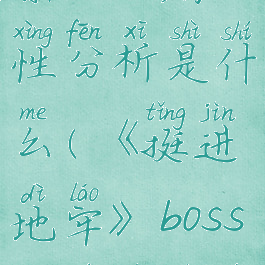 xìng fēn xī shì shí
性分析是什
me tǐng jìn
么(《挺进
dì láo
地牢》boss